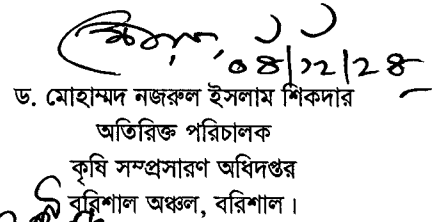 ০৪/১২/২৪
ড. মোহাম্মদ নজরুল ইসলাম শিকদার
অতিরিক্ত পরিচালক
কৃষি সম্প্রসারণ অধিদপ্তর
বরিশাল অঞ্চল, বরিশাল।